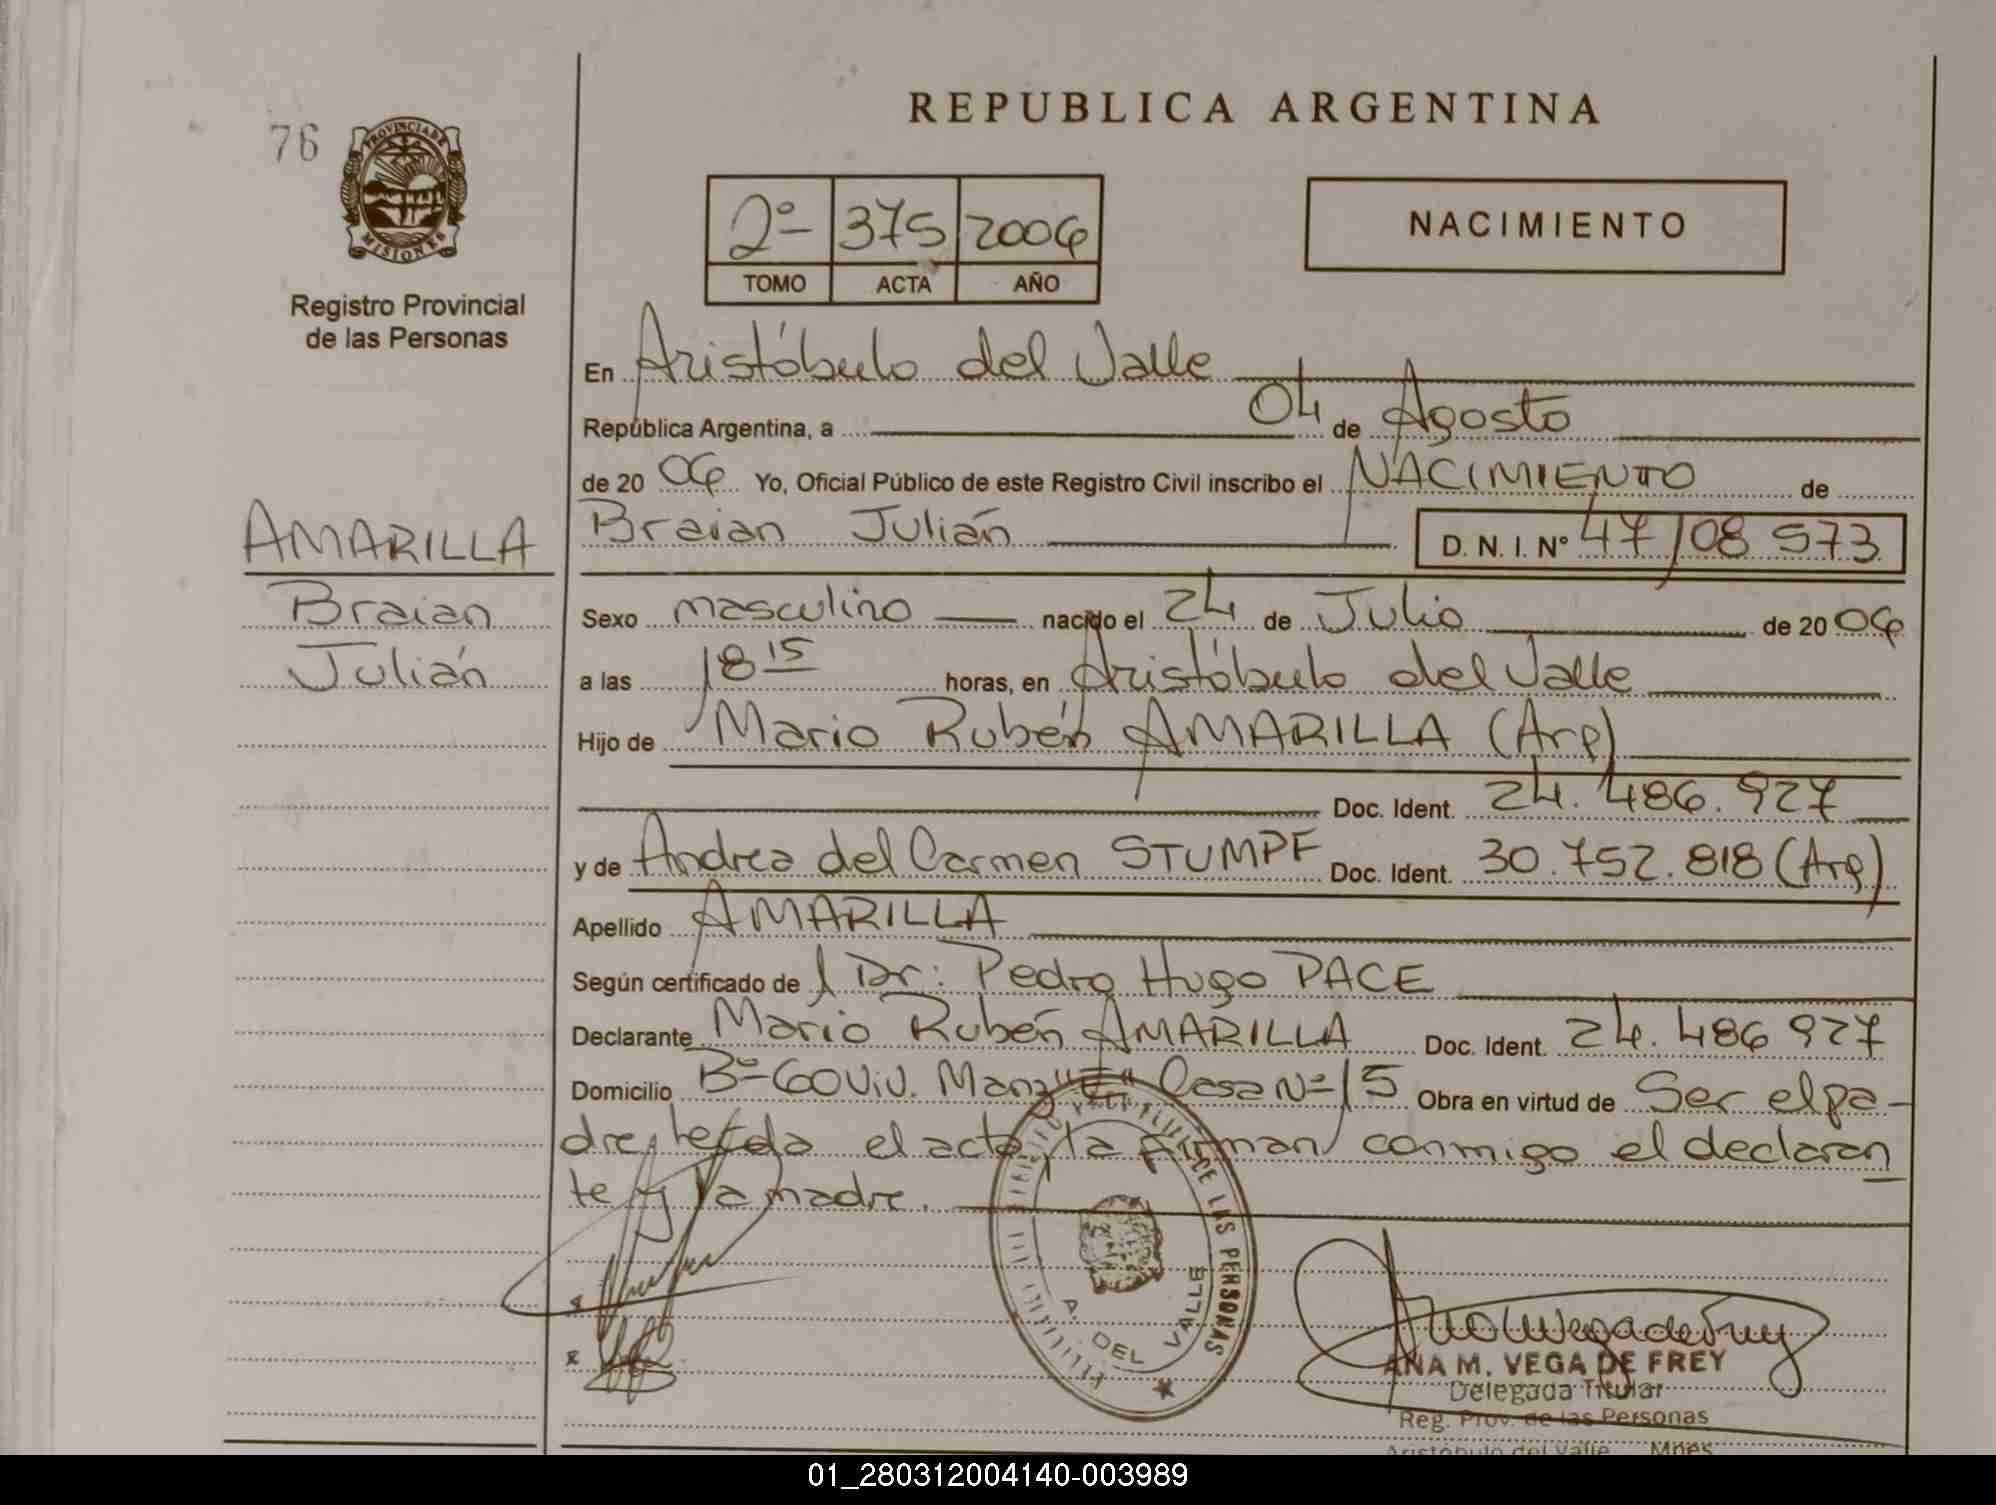 REPUBLICA ARGENTINA
76
PROVINCIA DE
MISIONES
Registro Provincial
de las Personas
2º 375 2006
TOMO ACTA AÑO
NACIMIENTO
En Aristóbulo del Valle
República Argentina, a 04 de Agosto
de 20 06 Yo, Oficial Público de este Registro Civil inscribo el NACIMIENTO de
AMARILLA
Braian Julián D. N. I. Nº 47108 573
Braian
Sexo masculino nacido el 24 de Julio de 20 06
Julián
a las 18 15 horas, en Aristóbulo del Valle
Hijo de Mario Rubén AMARILLA (Arg)
Doc. Ident. 24.486.927
y de Andrea del Carmen STUMPF Doc. Ident. 30.752.818 (Arg)
Apellido AMARILLA
Según certificado de Dr: Pedro Hugo PACE
Declarante Mario Rubén AMARILLA Doc. Ident. 24.486 927
Domicilio Bº 60 Viv. Manz "E" Casa Nº 15 Obra en virtud de Ser el pa-
dre, leída el acta, la firman conmigo el declaran
te y la madre.
DE LAS PERSONAS
A. DEL VALLE
ANA M. VEGA DE FREY
Delegada Titular
Reg. Prov. de las Personas
Aristóbulo del Valle Mnes
01_280312004140-003989